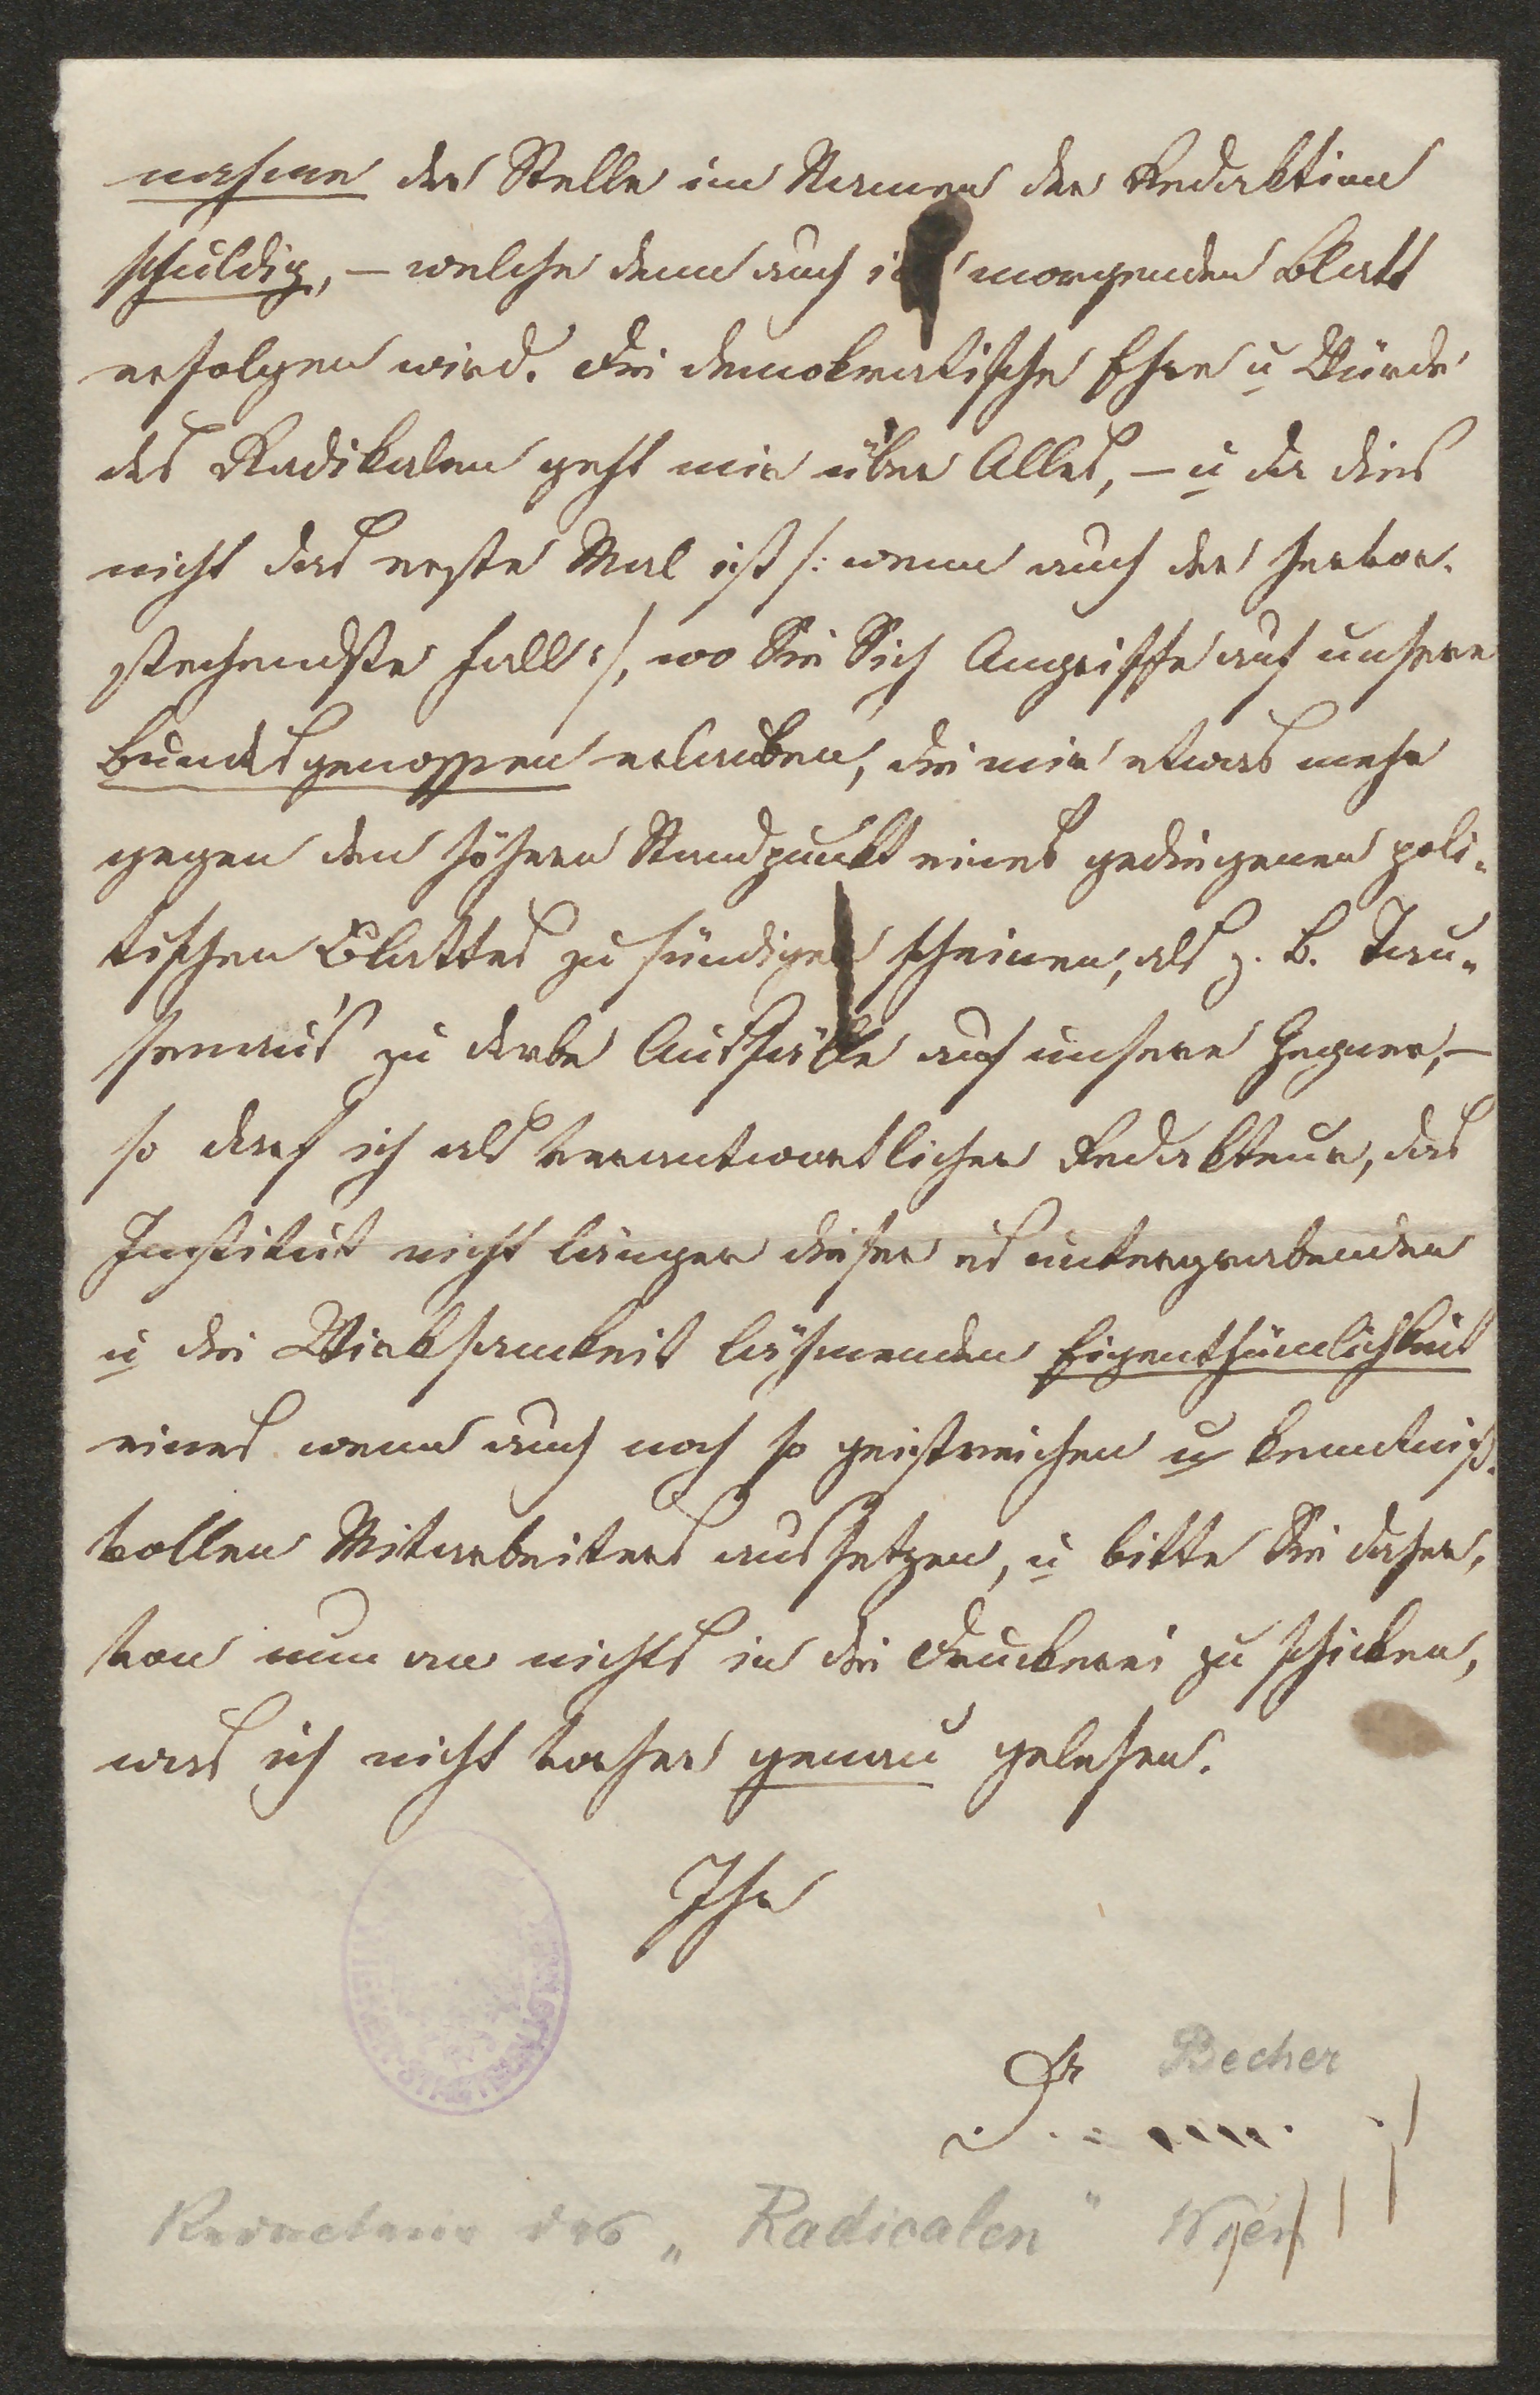 nahme der Stelle im Namen der Redaktion
schuldig, – welche denn auch im morgenden Blatt
erfolgen wird. Die demokratische Ehre u Würde
des Radikalen geht mir über Alles, – u da dies
nicht das erste Mal ist /: wenn auch der hervor-
stechendste Fall :/, wo Sie Sich Angriffe auf unsere
Bundesgenossen erlauben, die mir etwas mehr
gegen den höhern Standpunkt eines gediegenen poli-
tischen Blattes zu sündigen scheinen, als z. B. Tau-
senau's zu derbe Ausfälle auf unsere Gegner, –
so darf ich als verantwortlicher Redakteur, das
Institut nicht länger dieser es untergrabenden
u die Wirksamkeit lähmenden Eigenthümlichkeit
eines wenn auch noch so geistreichen u kenntniß-
vollen Mitarbeiters aussetzen, u bitte Sie daher,
von nun an nichts in die Druckerei zu schicken,
was ich nicht vorher genau gelesen.
Ihr
Dr Becher
Redacteur des „Radicalen" Wien